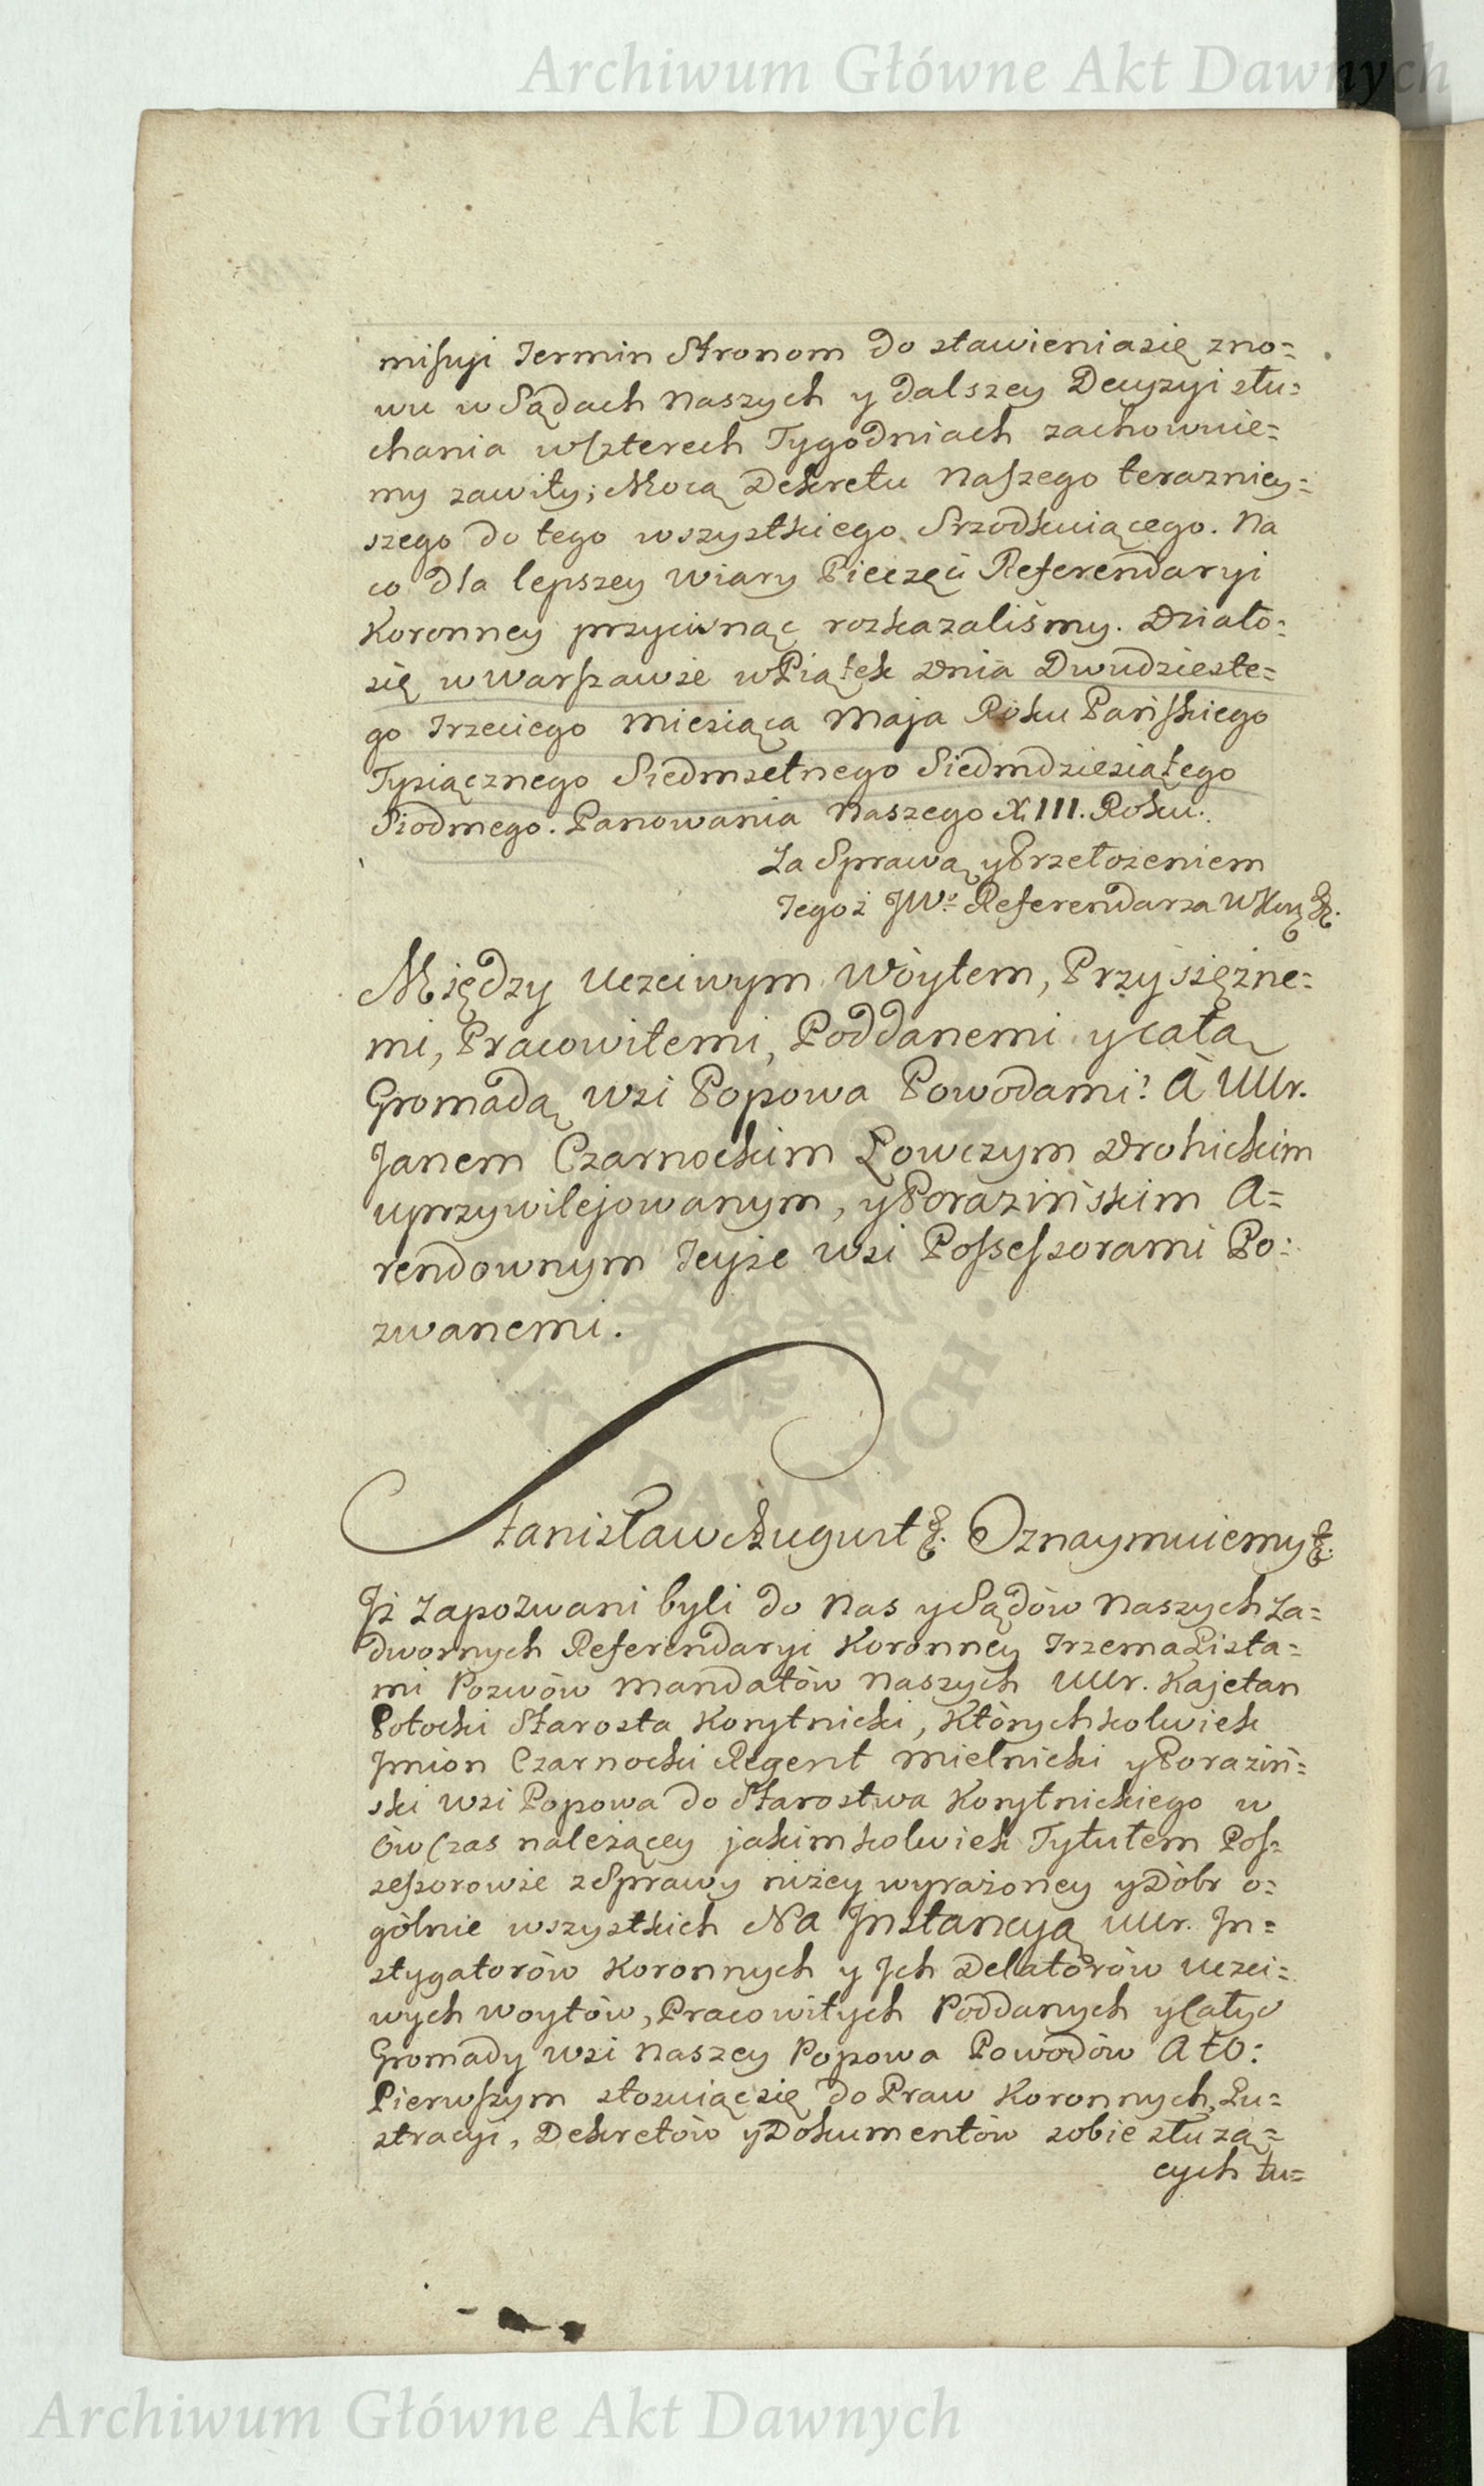 Archiwum Główne Akt Dawnych
misyi Termin Stronom do stawienia się zno=
wu w Sądach Naszych y dalszey Decyzyi słu=
chania w czterech Tygodniach zachowuie=
my zawity; Mocą Dekretu Naszego terazniey=
szego do tego wszystkiego Srzodkuiącego. Na
co dla lepszey wiary Pieczęć Referendaryi
Koronney przycisnąc rozkazaliśmy. Działo=
się w Warszawie w Piątek Dnia Dwudzieste=
go Trzeciego Miesiąca Maja Roku Pańskiego
Tysiącznego Siedmsetnego Siedmdziesiątego
Siodmego. Panowania Naszego XIII. Roku.
Za Sprawą y Przełożeniem
Tegoż JWo Referendarza WKor
Między Uczciwym Wóytem, Przysiężne=
mi, Pracowitemi, Poddanemi y całą
Gromadą Wsi Popowa Powodami: A UUr.
Janem Czarnockim Łowczym Drohickim
uprzywilejowanym, y Porazińskim A=
rendownym Teyże Wsi Possessorami Po=
zwanemi.
Stanisław August &. Oznaymuiemy &.
Iż zapozwani byli do Nas y Sądów Naszych Za=
dwornych Referendaryi Koronney Trzema Lista=
mi Pozwów Mandatów Naszych UUr. Kajetan
Potocki Starosta Korytnicki, Którychkolwiek
Jmion Czarnocki Regent Mielnicki y Poraziń=
ski Wsi Popowa do Starostwa Korytnickiego w
ów czas należącey jakimkolwiek Tytułem Pos=
sessorowie z Sprawy niżey wyrażoney y Dóbr o=
gólnie wszystkich Na Jnstancyą UUr. Jn=
stygatorów Koronnych y Jch Delatorów Uczci=
wych Woytów, Pracowitych Poddanych y Całey
Gromady Wsi Naszey Popowa Powodów A to:
Pierwszym stosuiąc się do Praw Koronnych, Lu=
stracyi, Dekretów y Dokumentów sobie służą=
cych tu=
Archiwum Główne Akt Dawnych